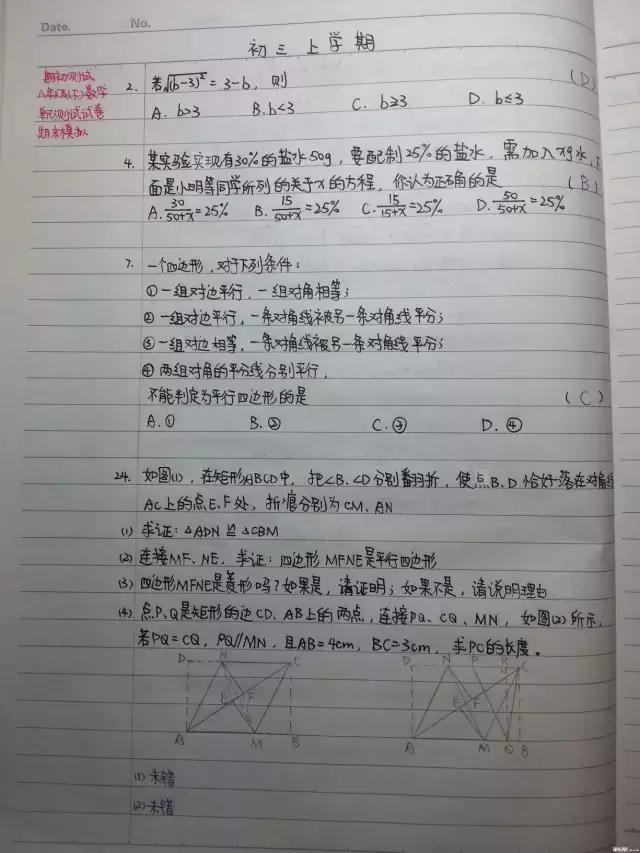 Date.
No.
初三上学期
期初测试
八年级(下)数学
单元测试试卷
期末模拟
2. 若√(b-3)² = 3-b, 则 (D)
A. b>3 B. b<3 C. b≥3 D. b≤3
4. 某实验室现有30%的盐水50g, 要配制25%的盐水, 需加入xg水, 下
面是小明等同学所列的关于x的方程, 你认为正确的是 (B)
A. 30/50+x =25% B. 15/50+x =25% C. 15/15+x =25% D. 50/50+x =25%
7. 一个四边形, 对于下列条件:
① 一组对边平行, 一组对角相等;
② 一组对边平行, 一条对角线被另一条对角线平分;
③ 一组对边相等, 一条对角线被另一条对角线平分;
④ 两组对角的平分线分别平行,
不能判定为平行四边形的是 (C)
A. ① B. ② C. ③ D. ④
24. 如图(1), 在矩形ABCD中, 把∠B、∠D分别翻折, 使点B、D恰好落在对角线
AC上的点E、F处, 折痕分别为CM、AN
(1) 求证: △ADN≌△CBM
(2) 连接MF、NE, 求证: 四边形MFNE是平行四边形
(3) 四边形MFNE是菱形吗? 如果是, 请证明; 如果不是, 请说明理由
(4) 点P、Q是矩形的边CD、AB上的两点, 连接PQ、CQ、MN, 如图(2)所示,
若PQ=CQ, PQ//MN, 且AB=4cm, BC=3cm, 求PC的长度。
D N C D N P R C
E F E F
A M B A M Q B
(1) 未错
(2) 未错